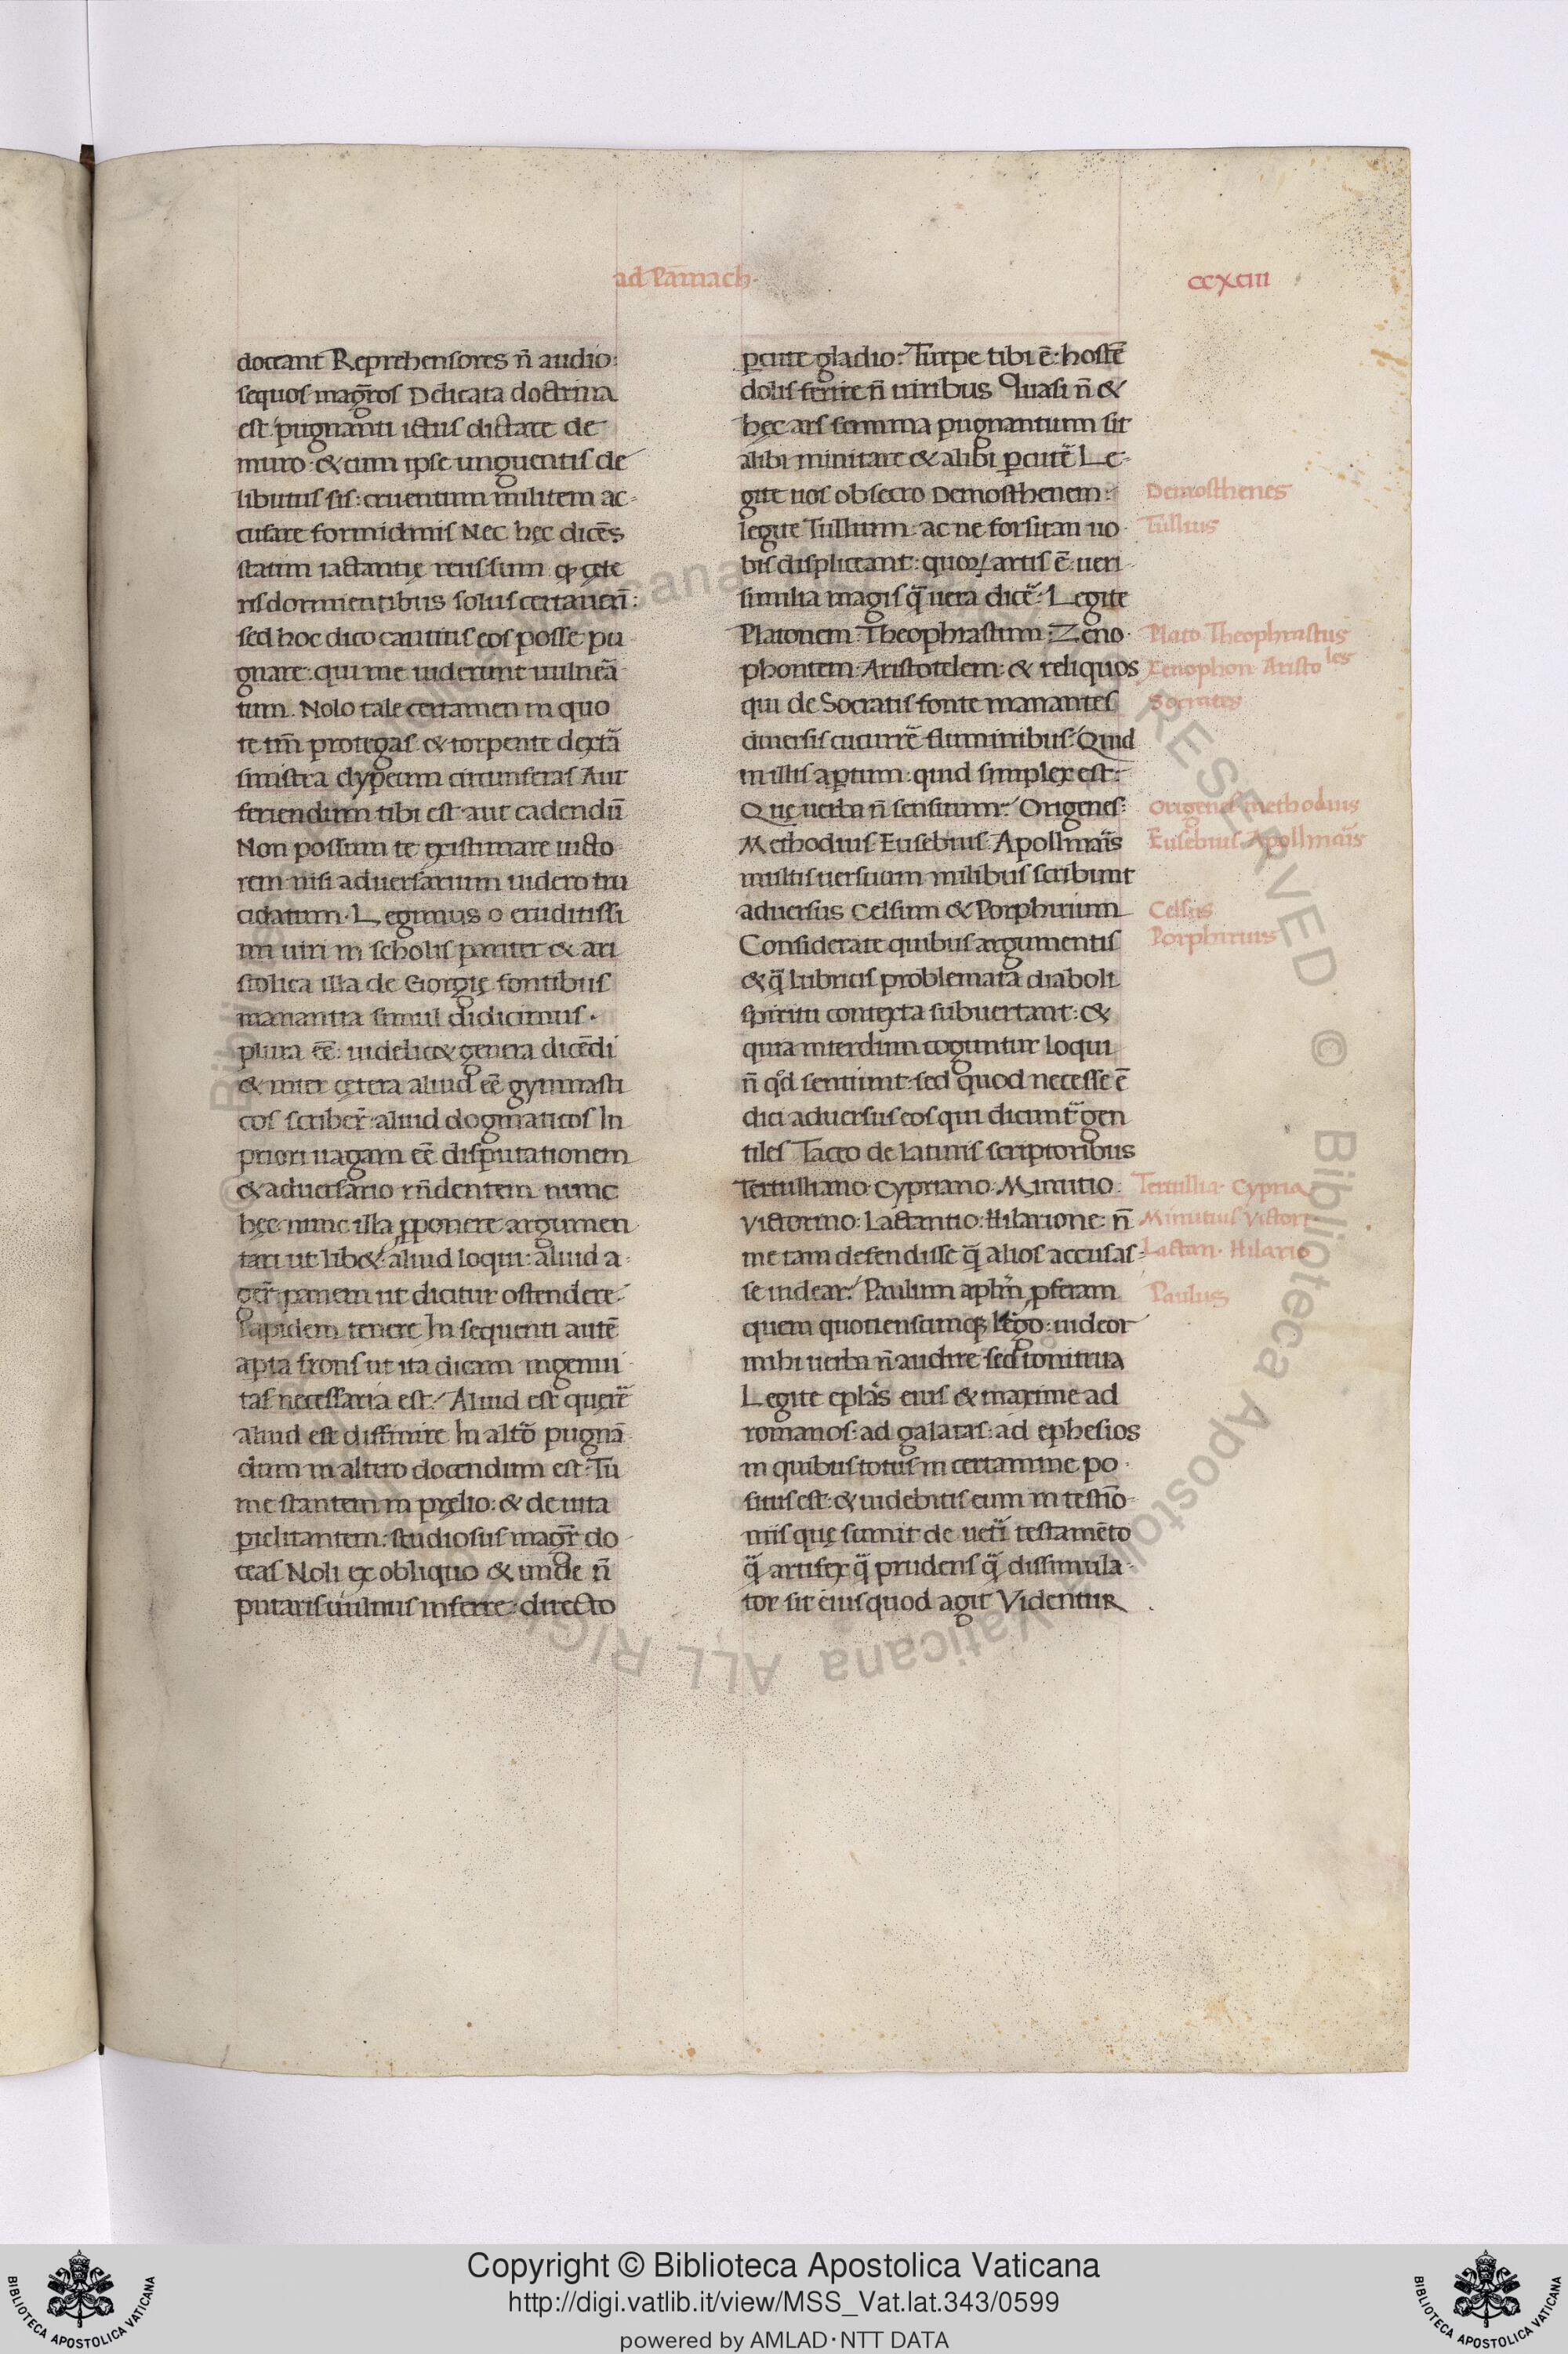 ad Pamach·
ccxciii
doceant Reprehensores n̄ audio:
sequor magr̄os Delicata doctrina
est pugnanti ictus dictare de
muro: & cum ipse unguentis de
libutus sis: cruentum militem ac-
cusare formidinis Nec hęc dicēs
statim iactantię reus sum quod cęte
ris dormientibus solus certauerī:
sed hoc dico cautius eos posse pu
gnare: qui me uiderunt uulnerā
tum. Nolo tale certamen in quo
te tm̄ protegas & torpente dextrā
sinistra clypeum circumferas Aut
feriendum tibi est aut cadendū
Non possum te existimare uicto
rem nisi aduersarium uidero tru
cidatum. Legimus o eruditissi
mi uiri in scholis pariter & ari
stolica illa de Giorgię fontibus
manantia simul didicimus·
plura eē: uidelic& genera dicēdi
& inter cętera aliud eē gymnasti
cos scriber̄ aliud dogmaticos In
priori uagam eē disputationem
& aduersario rn̄dentem nunc
hęc nunc illa ꝓponere argumen
tari ut lib& aliud loqui: aliud a-
ger̄ panem ut dicitur ostendere
lapidem tenere In sequenti autē
apta frons ut ita dicam ingenui
tas necessaria est Aliud est querē
aliud est diffinire In altō pugnā
dum in altero docendum est: Tu
me stantem in pręlio: & de uita
ꝑiclitantem: studiosus magr̄ do
ceas Noli ex obliquo & unde n̄
putaris uulnus inferre: directo
ꝑcute gladio: Turpe tibi ē: hostē
dolis ferire n̄ uiribus Quasi n̄ &
hęc ars summa pugnantium sit
alibi minitare & alibi ꝑcutē Le-
gite uos obsecro Demosthenem:
legite Tullium: ac ne forsitan uo
bis displiceant: quoꝝ artis ē: ueri
similia magis q̄ uera dicē: Legite
Platonem Theophrastum: Zeno
phontem: Aristotelem: & reliquos
qui de Socratis fonte manantes
diuersis cucurrē fluminibus: Quid
in illis aꝑtum: quid simplex est:
Quę uerba n̄ sensum: Origenes:
Methodius Eusebius Apollinaīs
multis uersuum milibus scribunt
aduersus Celsum & Porphirium
Considerate quibus argumentis
& q̄ lubricis problemata diaboli
spiritu contexta subuertant: &
quia interdum coguntur loqui
n̄ qd̄ sentiunt: sed quod necesse ē
dici aduersus eos qui dicunt̄ gen
tiles Taceo de latinis scriptoribus
Tertulliano Cypriano Minutio
Victorino: Lactantio: Hilarione: n̄
me tam defendisse q̄ alios accusas-
se uidear: Paulum aplm̄ ꝓferam
quem quotiensumq; lego: uideor
mihi uerba n̄ audire sed tonitrua
Legite eplās eius & maxime ad
romanos: ad galatas: ad ephesios
in quibus totus in certamine po
situs est: & uidebitis eum in testīo-
niis quę sumit de uetī testamēto
q̄ artifex q̄ prudens q̄ dissimula
tor sit eius quod agit Videntur
Demosthenes
Tullius
Plato Theophrastus
Xenophon Aristoles
Socrates
Origenes methodius
Eusebius Apollinaīs
Celsus
Porphirius
Tertullia Cypria
Minutius Victori
Lactan. Hilario
Paulus
Copyright © Biblioteca Apostolica Vaticana
http://digi.vatlib.it/view/MSS_Vat.lat.343/0599
powered by AMLAD·NTT DATA